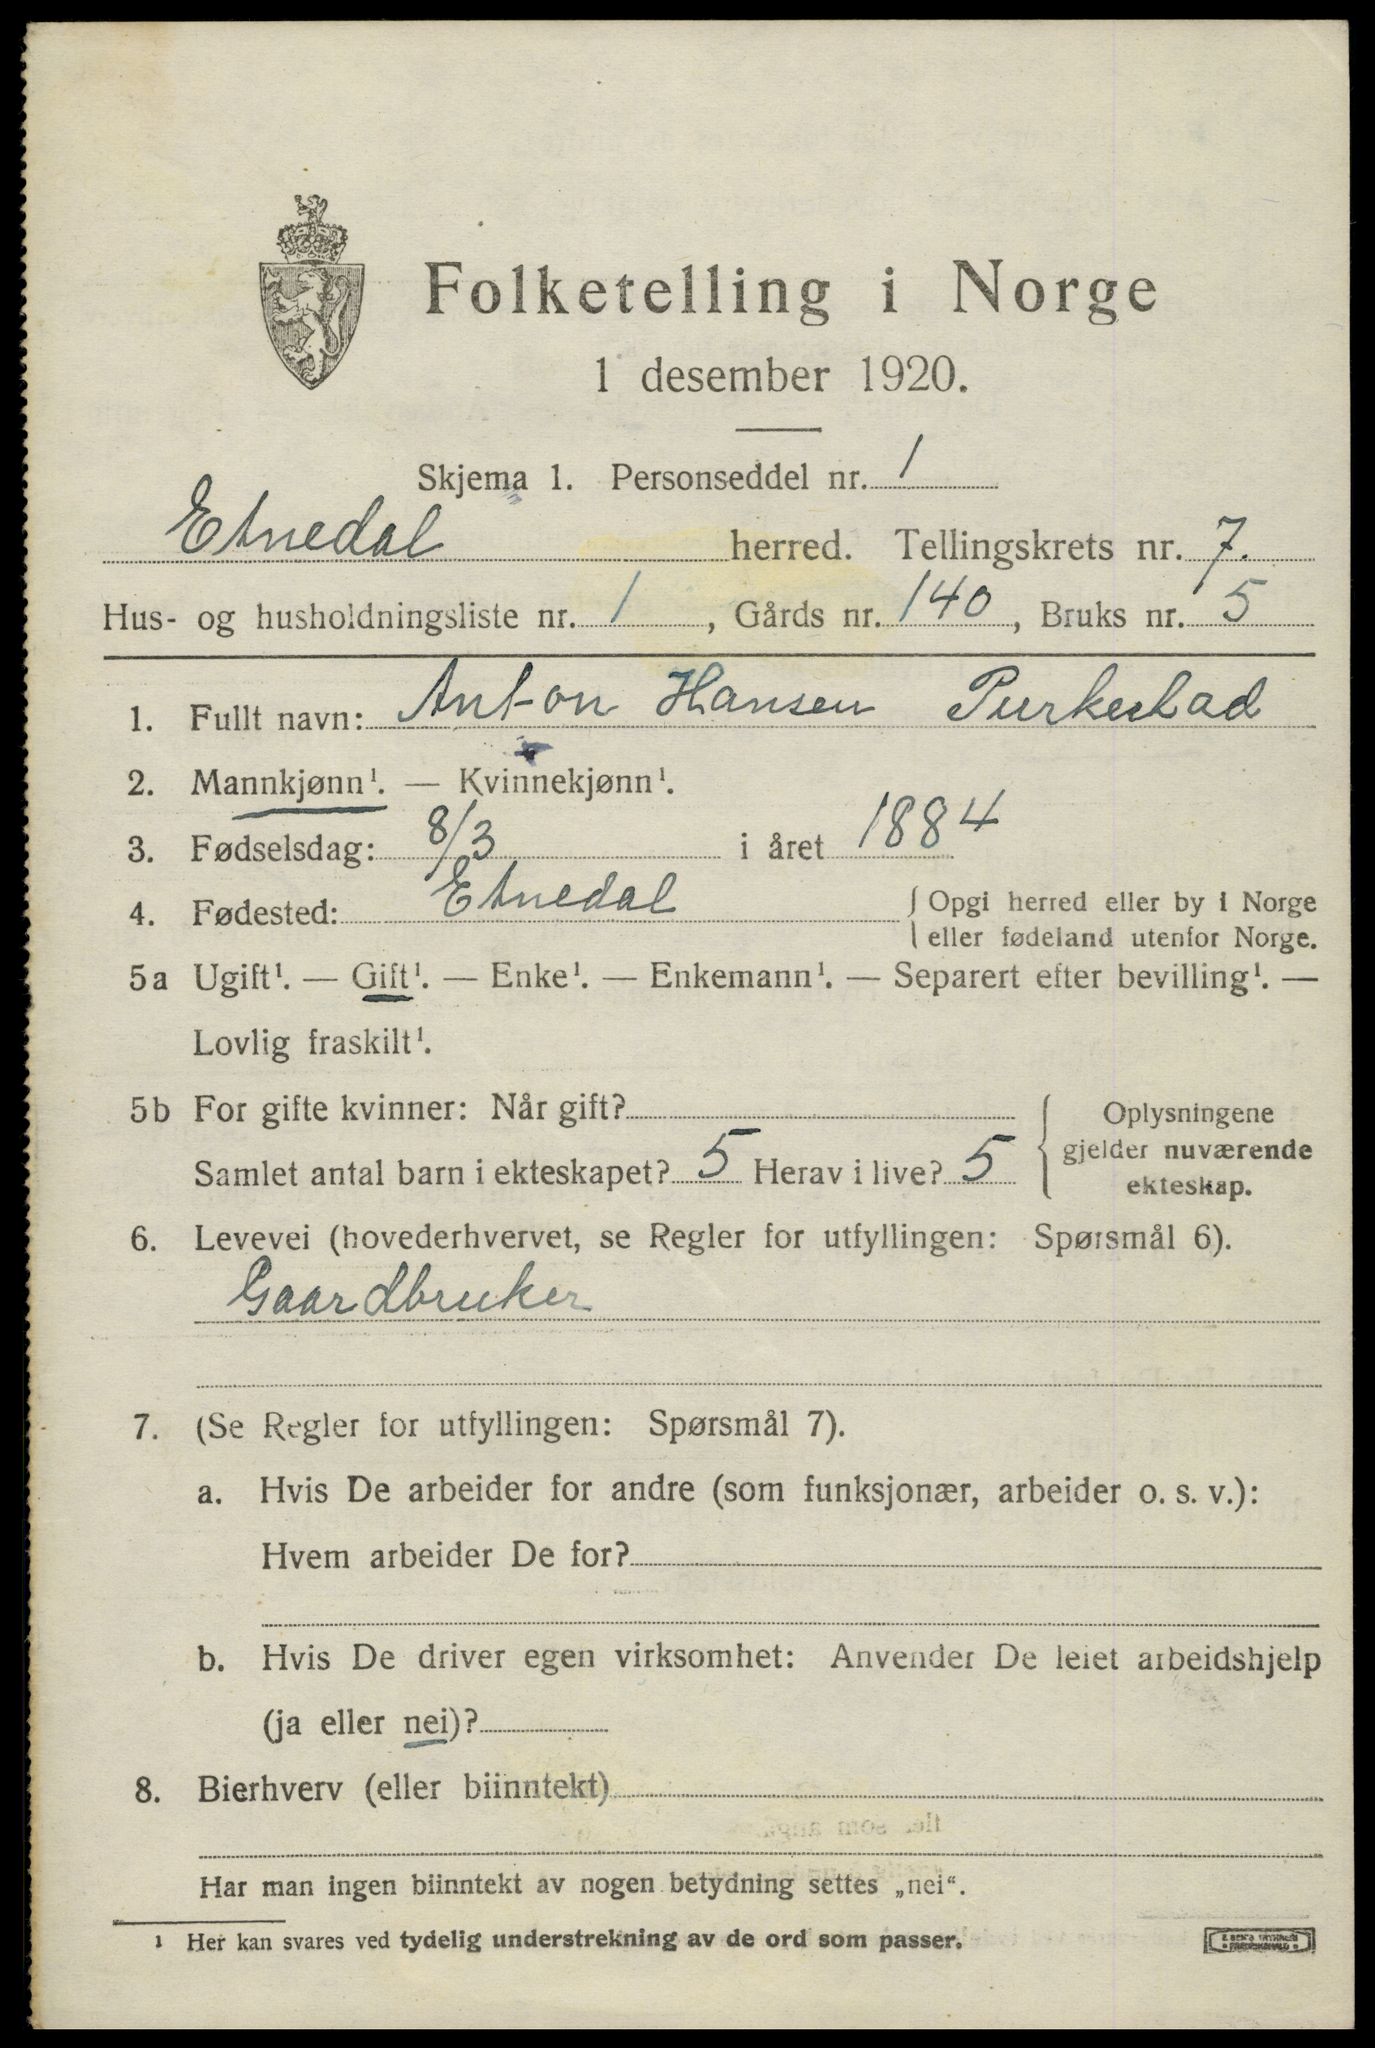 Folketelling i Norge
1 desember 1920.
Skjema 1. Personseddel nr. 1
Etnedal herred. Tellingskrets nr. 7.
Hus- og husholdningsliste nr. 1, Gårds nr. 140, Bruks nr. 5
1. Fullt navn: Anton Hansen Purkestad
2. Mannkjønn¹. — Kvinnekjønn¹.
3. Fødselsdag: 8/3 i året 1884
4. Fødested: Etnedal { Opgi herred eller by i Norge
eller fødeland utenfor Norge.
5a Ugift¹. — Gift¹. — Enke¹. — Enkemann¹. — Separert efter bevilling¹. —
Lovlig fraskilt¹.
5b For gifte kvinner: Når gift?
Samlet antal barn i ekteskapet? 5 Herav i live? 5
Oplysningene
gjelder nuværende
ekteskap.
6. Levevei (hovederhvervet, se Regler for utfyllingen: Spørsmål 6).
Gaardbruker
7. (Se Regler for utfyllingen: Spørsmål 7).
a. Hvis De arbeider for andre (som funksjonær, arbeider o. s. v.):
Hvem arbeider De for?
b. Hvis De driver egen virksomhet: Anvender De leiet arbeidshjelp
(ja eller nei)?
8. Bierhverv (eller biinntekt)
Har man ingen biinntekt av nogen betydning settes „nei“.
¹ Her kan svares ved tydelig understrekning av de ord som passer.